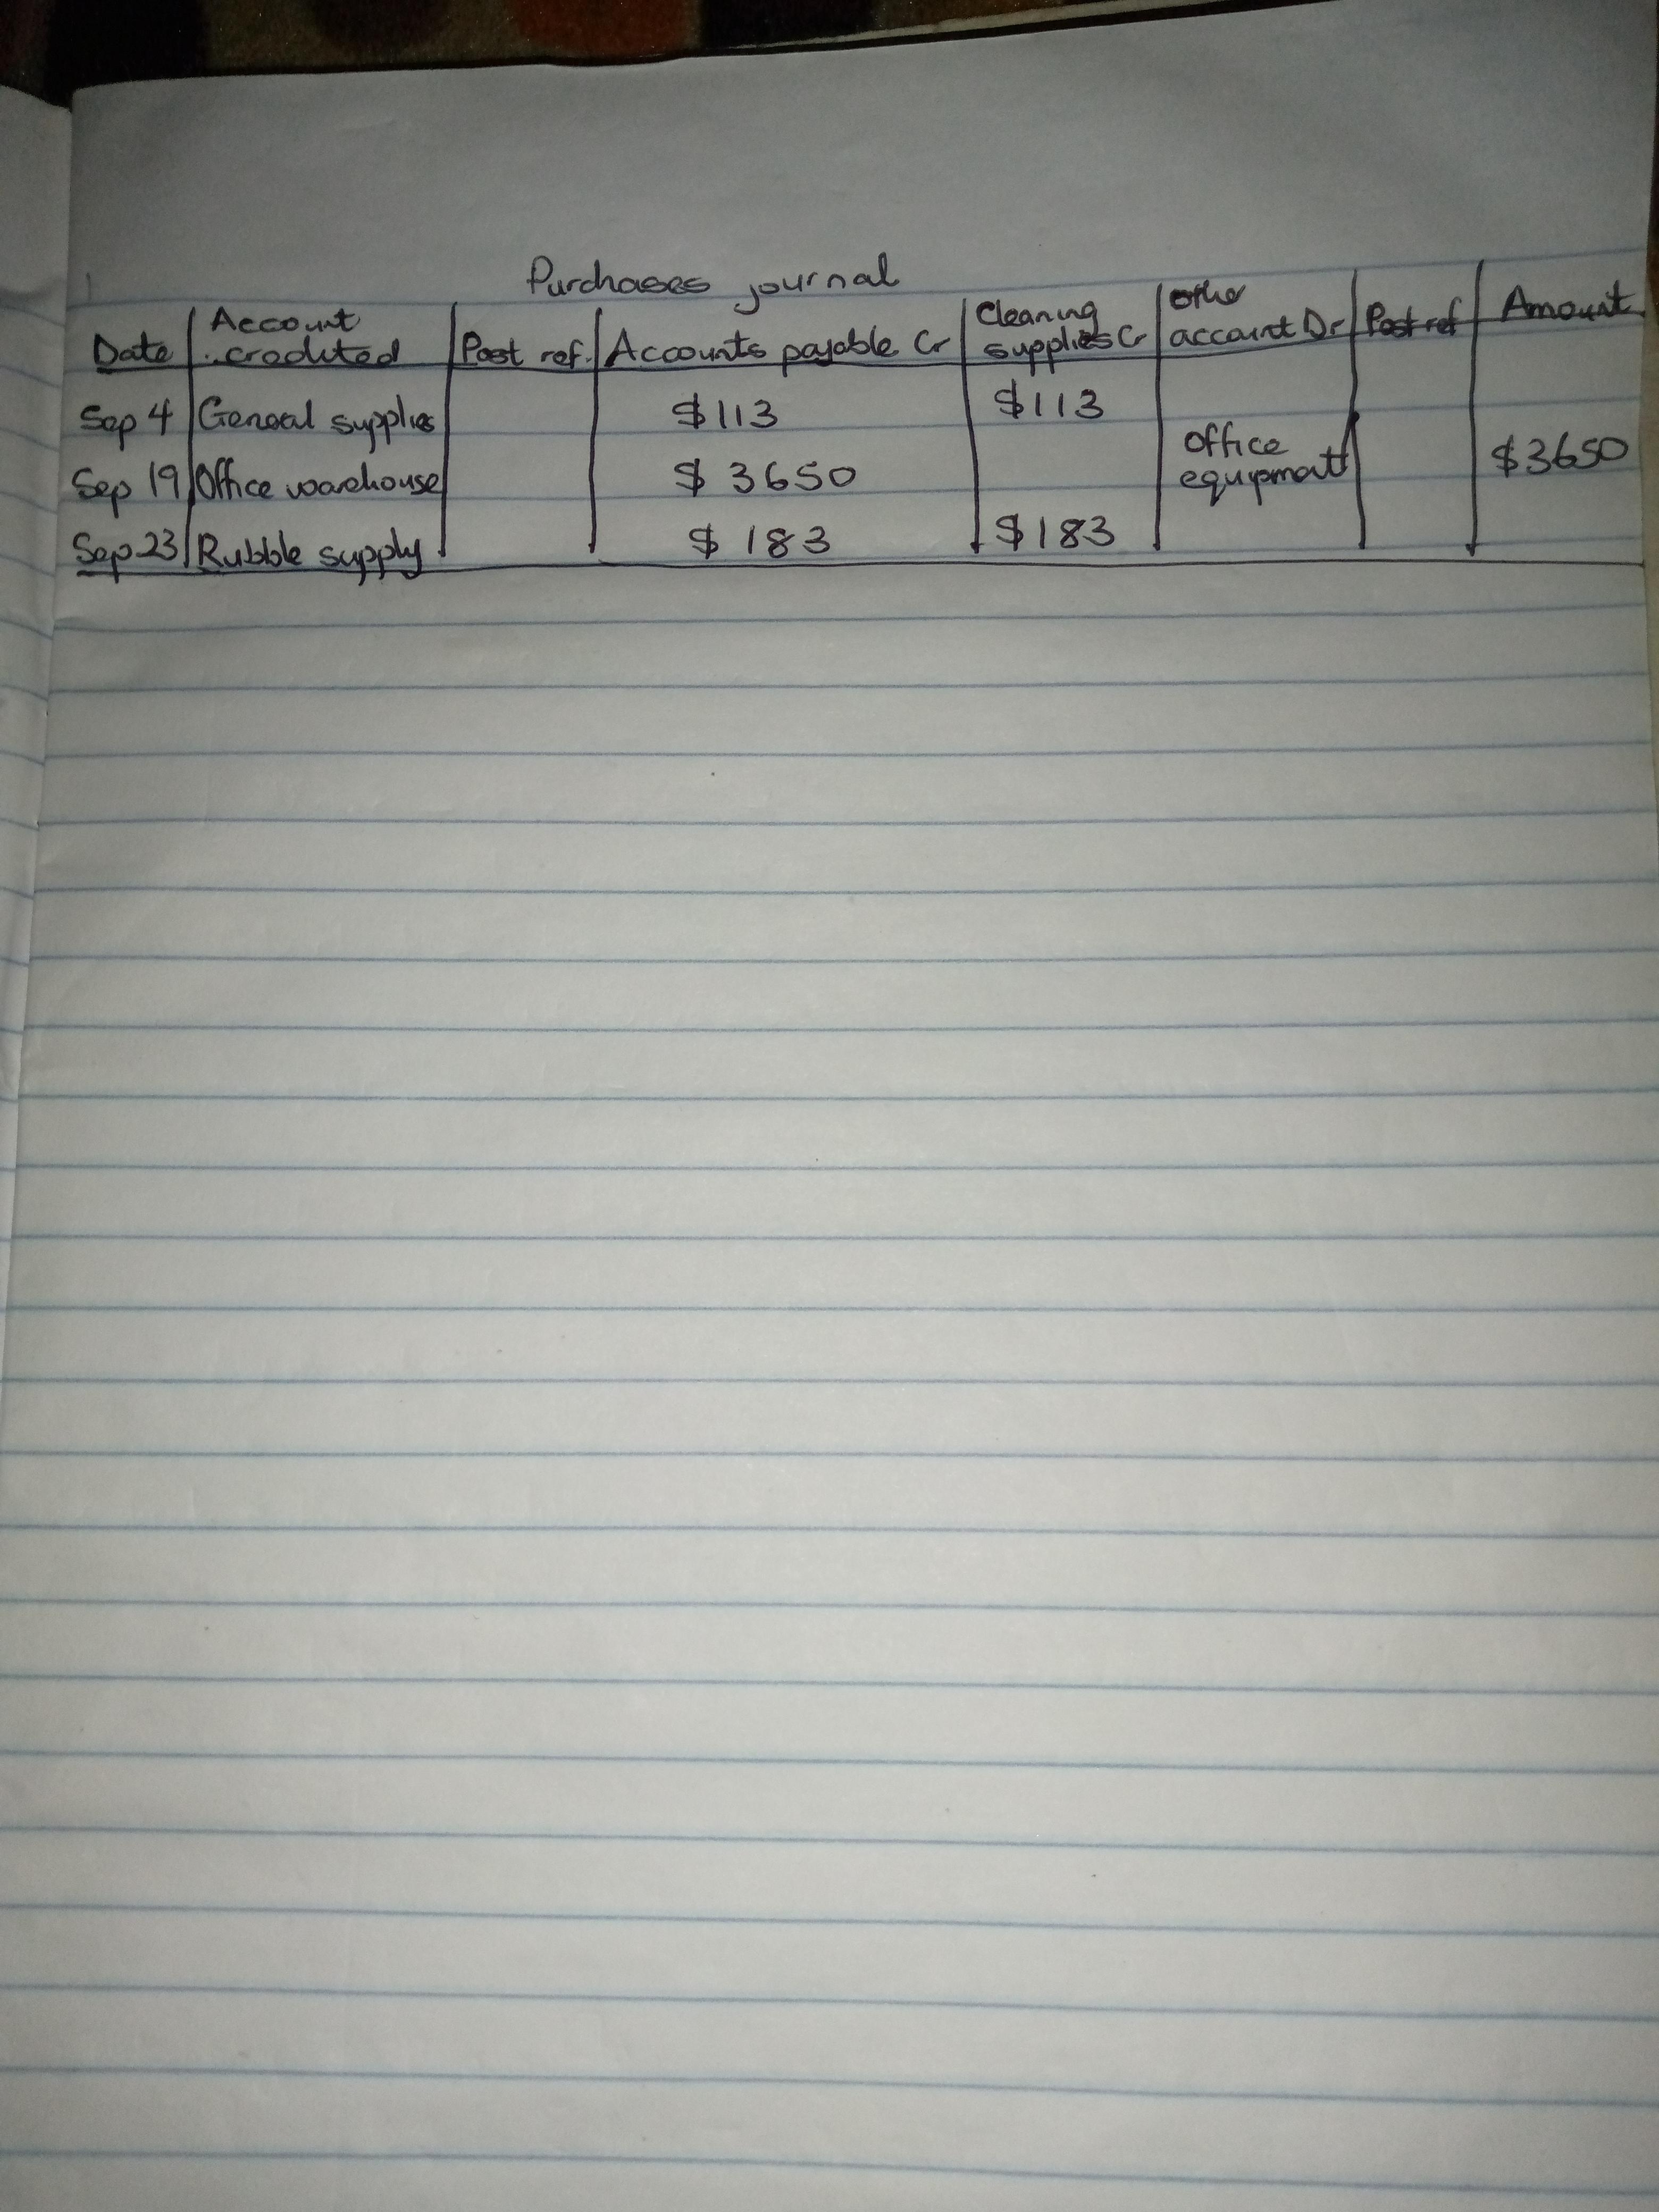 Purchases journal
Date | Account credited | Post ref. | Accounts payable Cr | Cleaning supplies Cr | Other account Dr | Post ref | Amount
Sep 4 | General supplies | $113 | $113
Sep 19 | Office warehouse | $3650 | Office equipment | $3650
Sep 23 | Rubble supply | $183 | $183